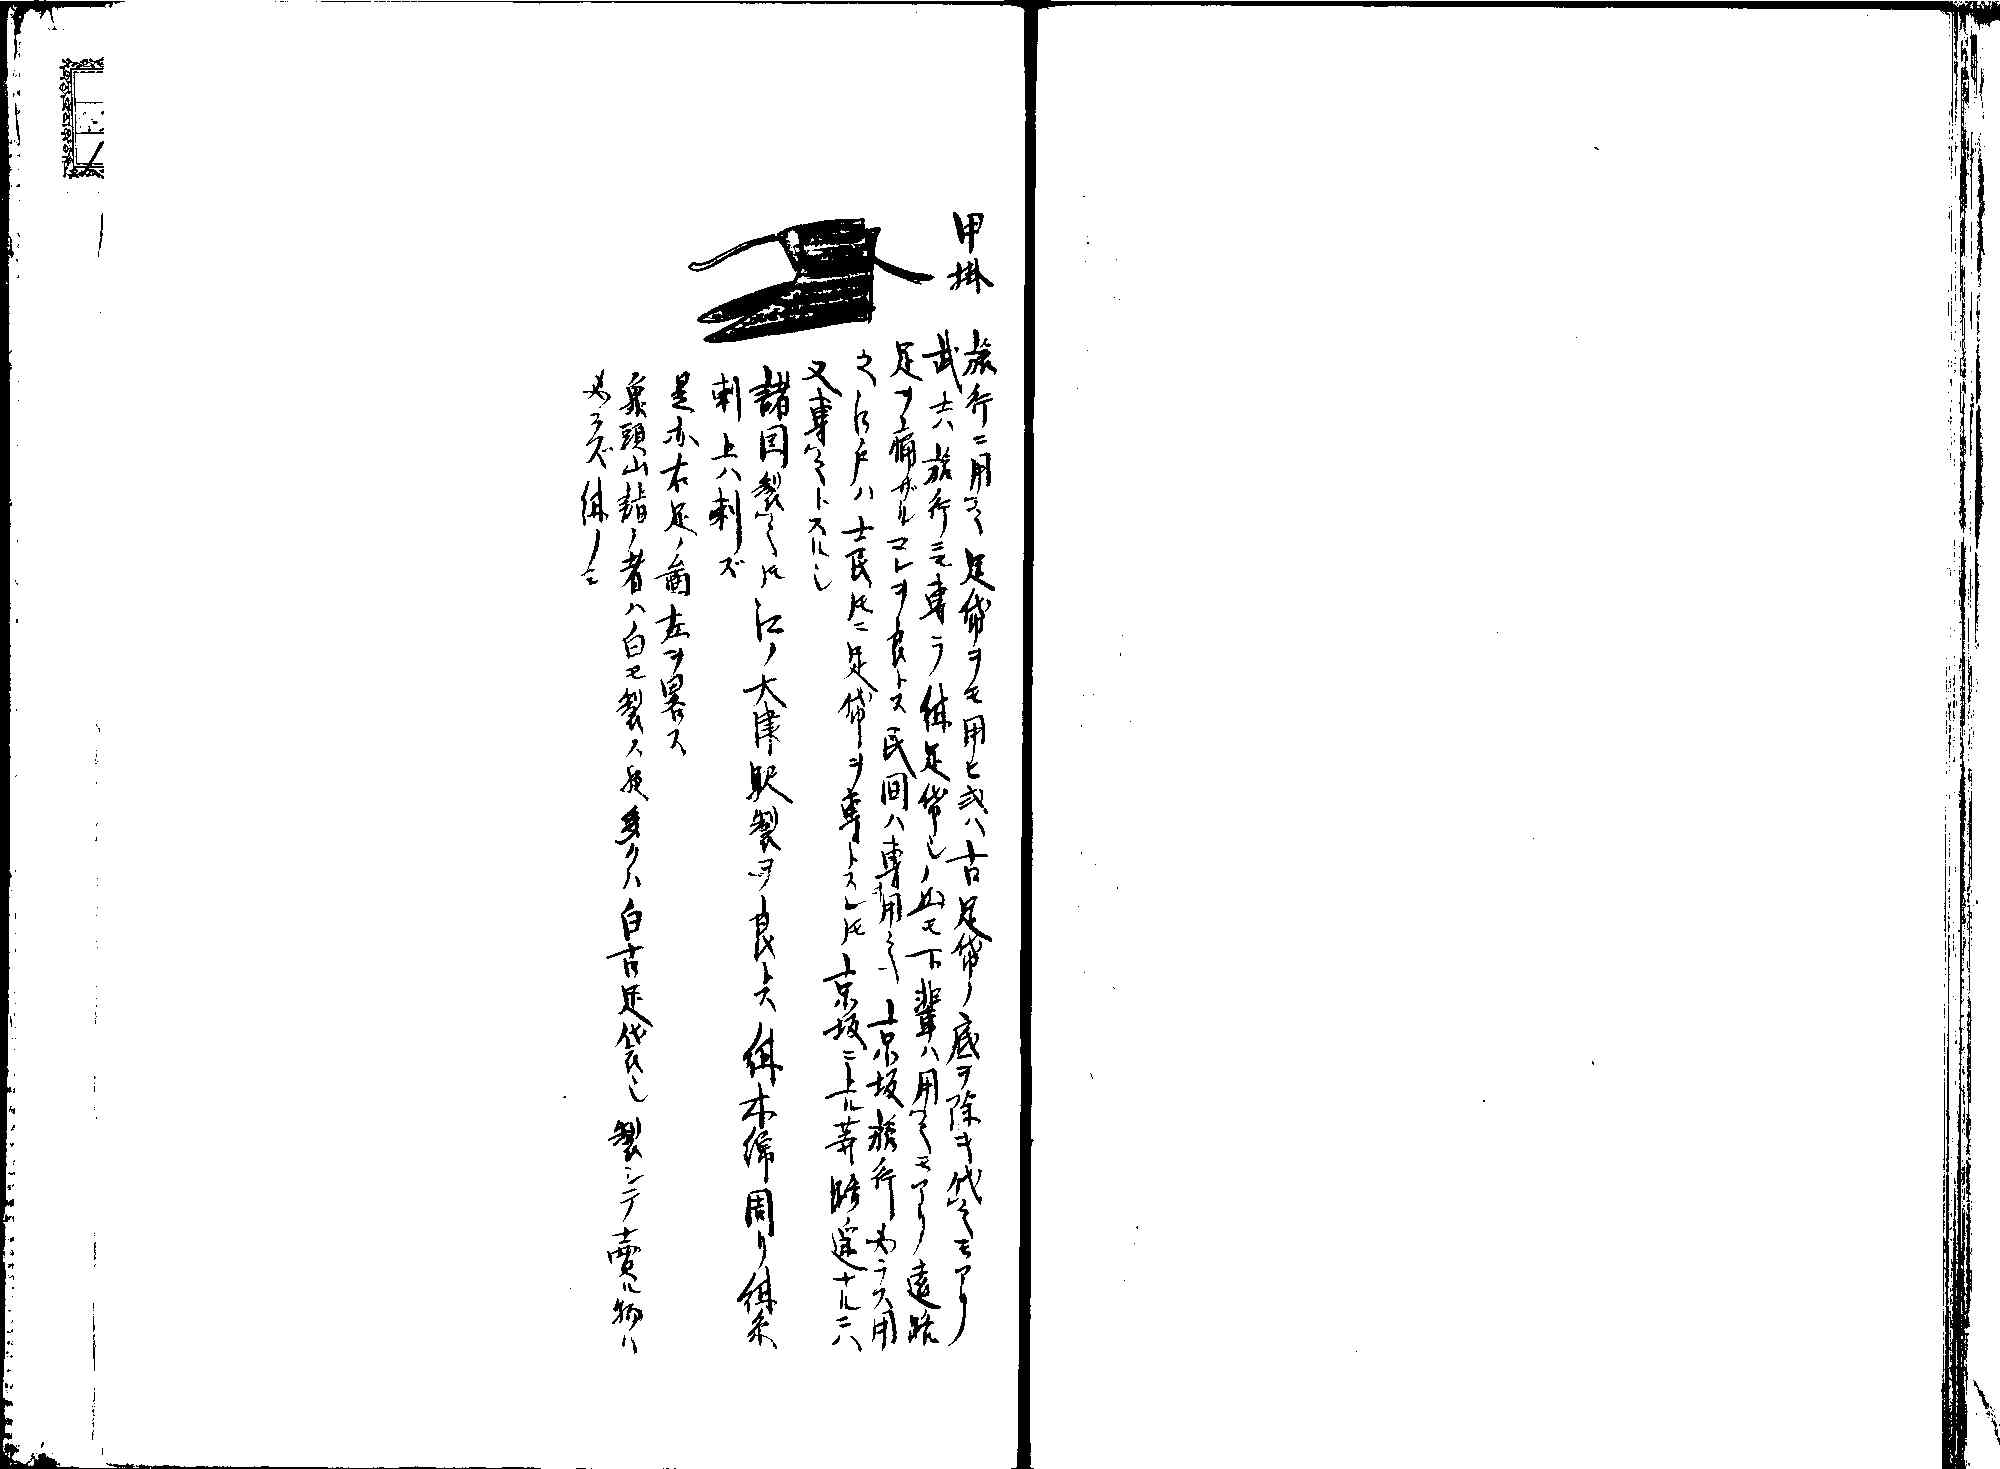 甲掛
旅行ニ用之足袋ヲモ用ヒ或ハ古足袋ノ底ヲ除キ代之モアリ
武士ハ旅行ニモ専ラ紺足袋也ノ此モ下輩ハ用之モアリ遠路
足ヲ痛ザルコレヲ良トス民間ハ専用之京坂旅行必ラス用
之江戸ハ士民トモニ足袋ヲ専トスレトモ京坂ニ上ル等路遠ナルニハ
又専之トスル也
諸国製之トモ江ノ大津駅製ヲ良トス紺木綿周リ紺糸
刺上ハ刺ズ
是亦右足ノ図左ヲ畧ス
象頭山詣ノ者ハ白モ製ス然多クハ白古足袋也製シテ賣ル物ハ
必ラズ紺ノミ